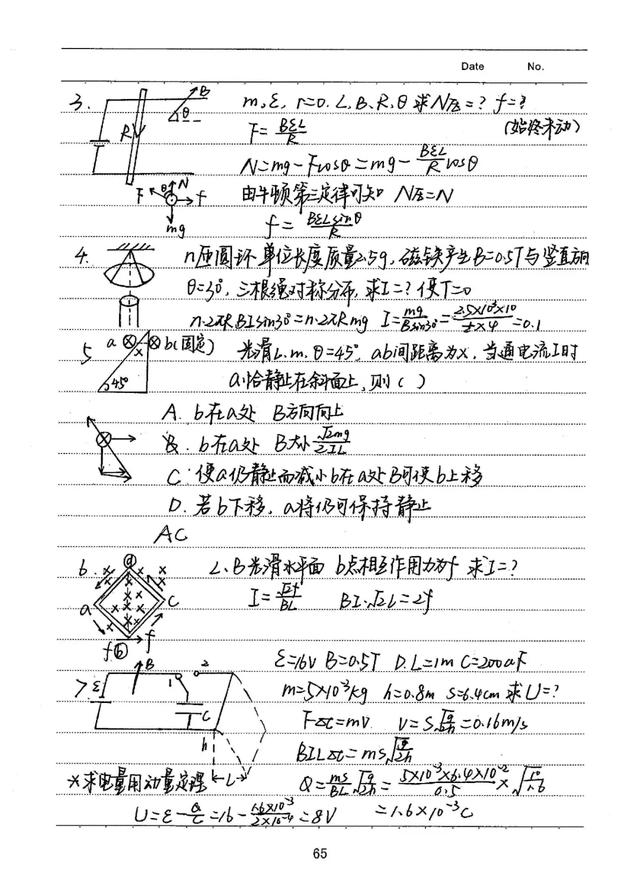 Date No.
3. m, ε, r=0. L, B, R, θ 求N压=? f=?
B θ R F=BεL/R (始终未动)
N=mg-Fcosθ=mg-BεL/R cosθ
F θ N f 由牛顿第三定律可知 N压=N
mg f=BεLsinθ/R
4. n匝圆环单位长度质量2.5g, 磁铁产生B=0.5T与竖直方向
θ=30°, 三根绳对称分布, 求I=? 使T=0
n·2πR BI sin30°=n·2πR mg I=mg/Bsin30°=2.5×10⁻³×10/½×½=0.1
5 a x b(固定) 光滑L.m.θ=45° ab间距离为x, 当通电流I时
45° a恰静止在斜面上, 则( )
A. b在a处 B方向向上
B. b在a处 B大小√2mg/2IL
C. 使a仍静止而减小b在a处B可使b上移
D. 若b下移, a将仍可保持静止
AC
6. d L、B光滑水平面 b点相互作用力为f 求I=?
a c I=√2f/BL BI·√2L=2f
f b f
ε=16V B=0.5T D.L=1m C=200uF
7 ε B 1 2 C m=5×10⁻³kg h=0.8m s=6.4cm 求U=?
F△t=mv v=S√g/2h=0.16m/s
h BIL△t=ms√g/2h
L
※求电量用动量定理 Q=ms/BL√g/2h=5×10⁻³×6.4×10⁻²/0.5×√10/1.6
U=ε-Q/C=16-1.6×10⁻³/2×10⁻⁴=8V =1.6×10⁻³C
65